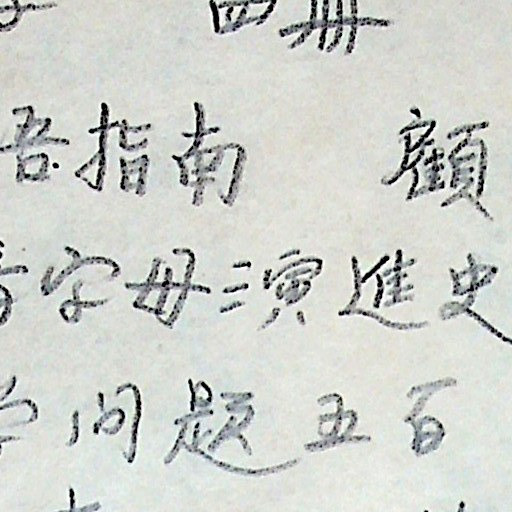 四冊
指南 顧
字母演進史
学问题五百